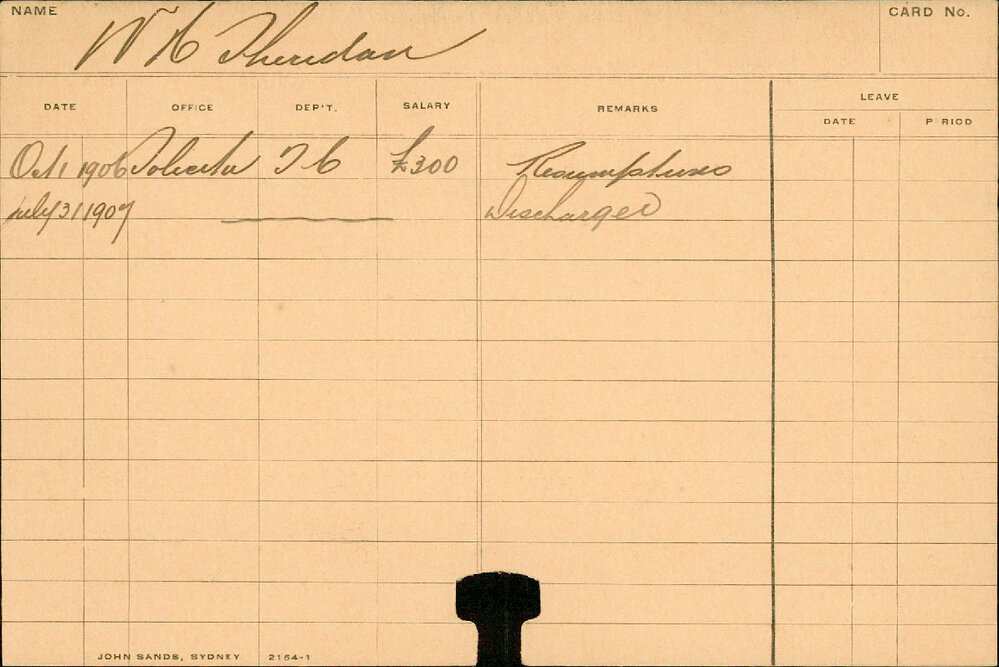 NAME
W H Sheridan
CARD No.
DATE OFFICE DEP'T. SALARY REMARKS LEAVE
DATE P RIOD
Oct 1 1906 Solicitor T C £300 Resumptions
July 31 1907 Discharged
JOHN SANDS, SYDNEY 2154-1